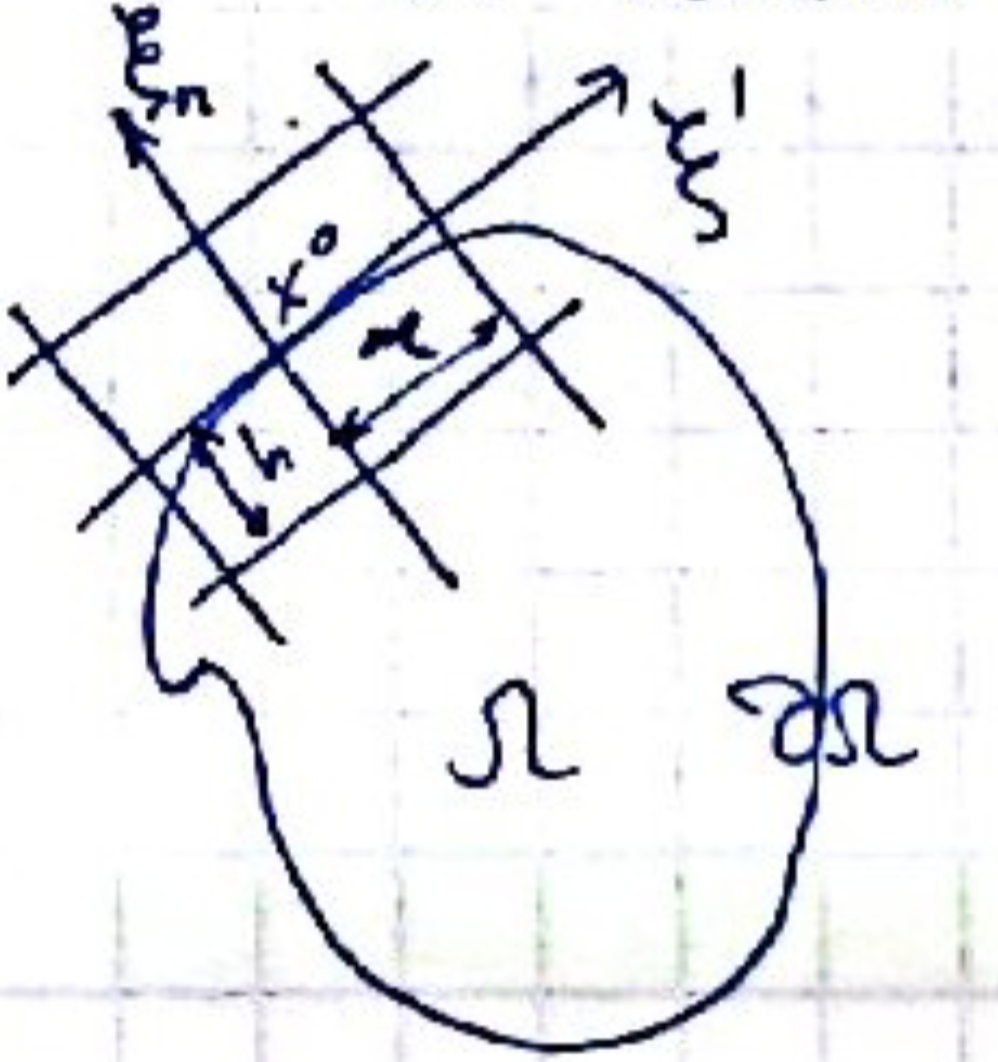 ξn
ξ'
x⁰
h
Ω
∂Ω